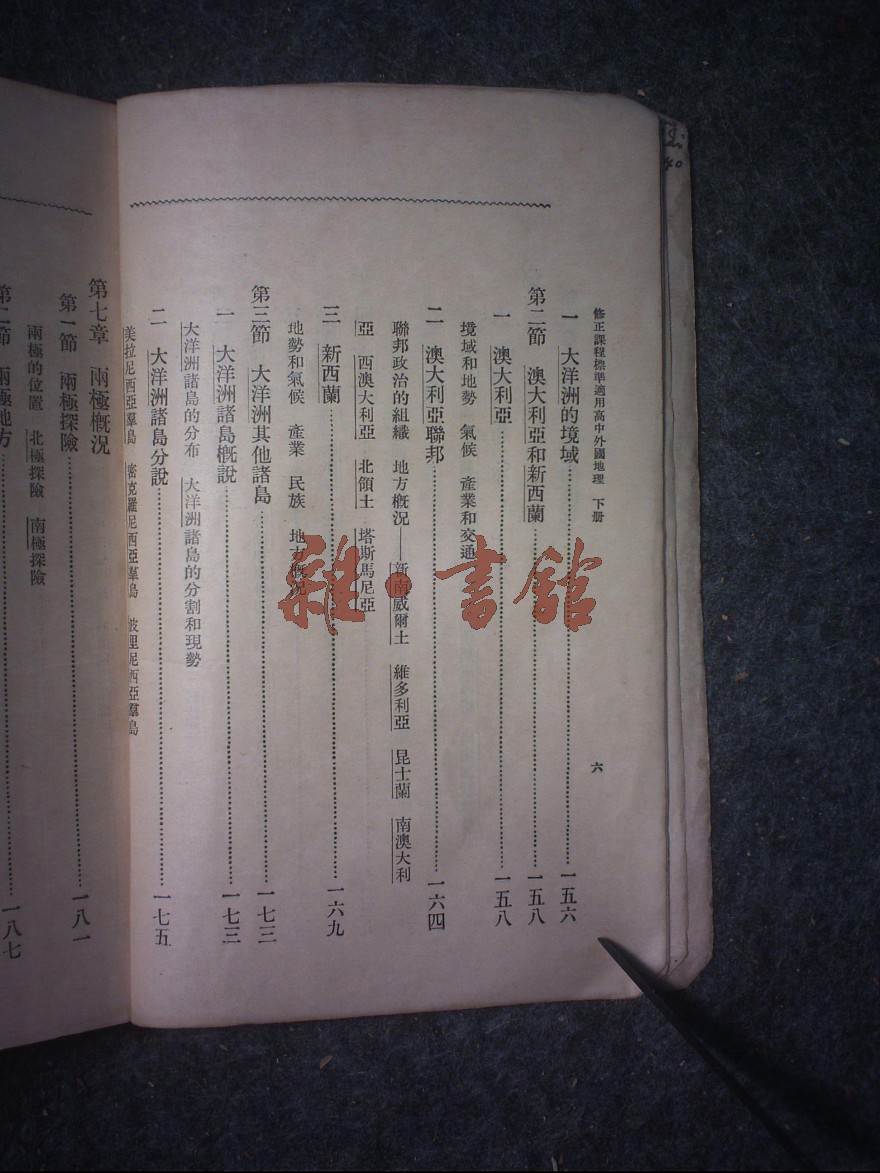 修正課程標準適用高中外國地理　下册
六
一　大洋洲的境域⋯⋯一五六
第二節　澳大利亞和新西蘭⋯⋯一五八
一　澳大利亞⋯⋯一五八
境域和地勢　氣候　產業和交通
二　澳大利亞聯邦⋯⋯一六四
聯邦政治的組織　地方概況——新南威爾士　維多利亞　昆士蘭　南澳大利
亞　西澳大利亞　北領土　塔斯馬尼亞
三　新西蘭⋯⋯一六九
地勢和氣候　產業　民族　地方概況
第三節　大洋洲其他諸島⋯⋯一七三
一　大洋洲諸島概說⋯⋯一七三
大洋洲諸島的分布　大洋洲諸島的分割和現勢
二　大洋洲諸島分說⋯⋯一七五
美拉尼西亞羣島　密克羅尼西亞羣島　波里尼西亞羣島
第七章　兩極概況
第一節　兩極探險⋯⋯一八一
兩極的位置　北極探險　南極探險
第二節　兩極地方⋯⋯一八七
雜·書館
40